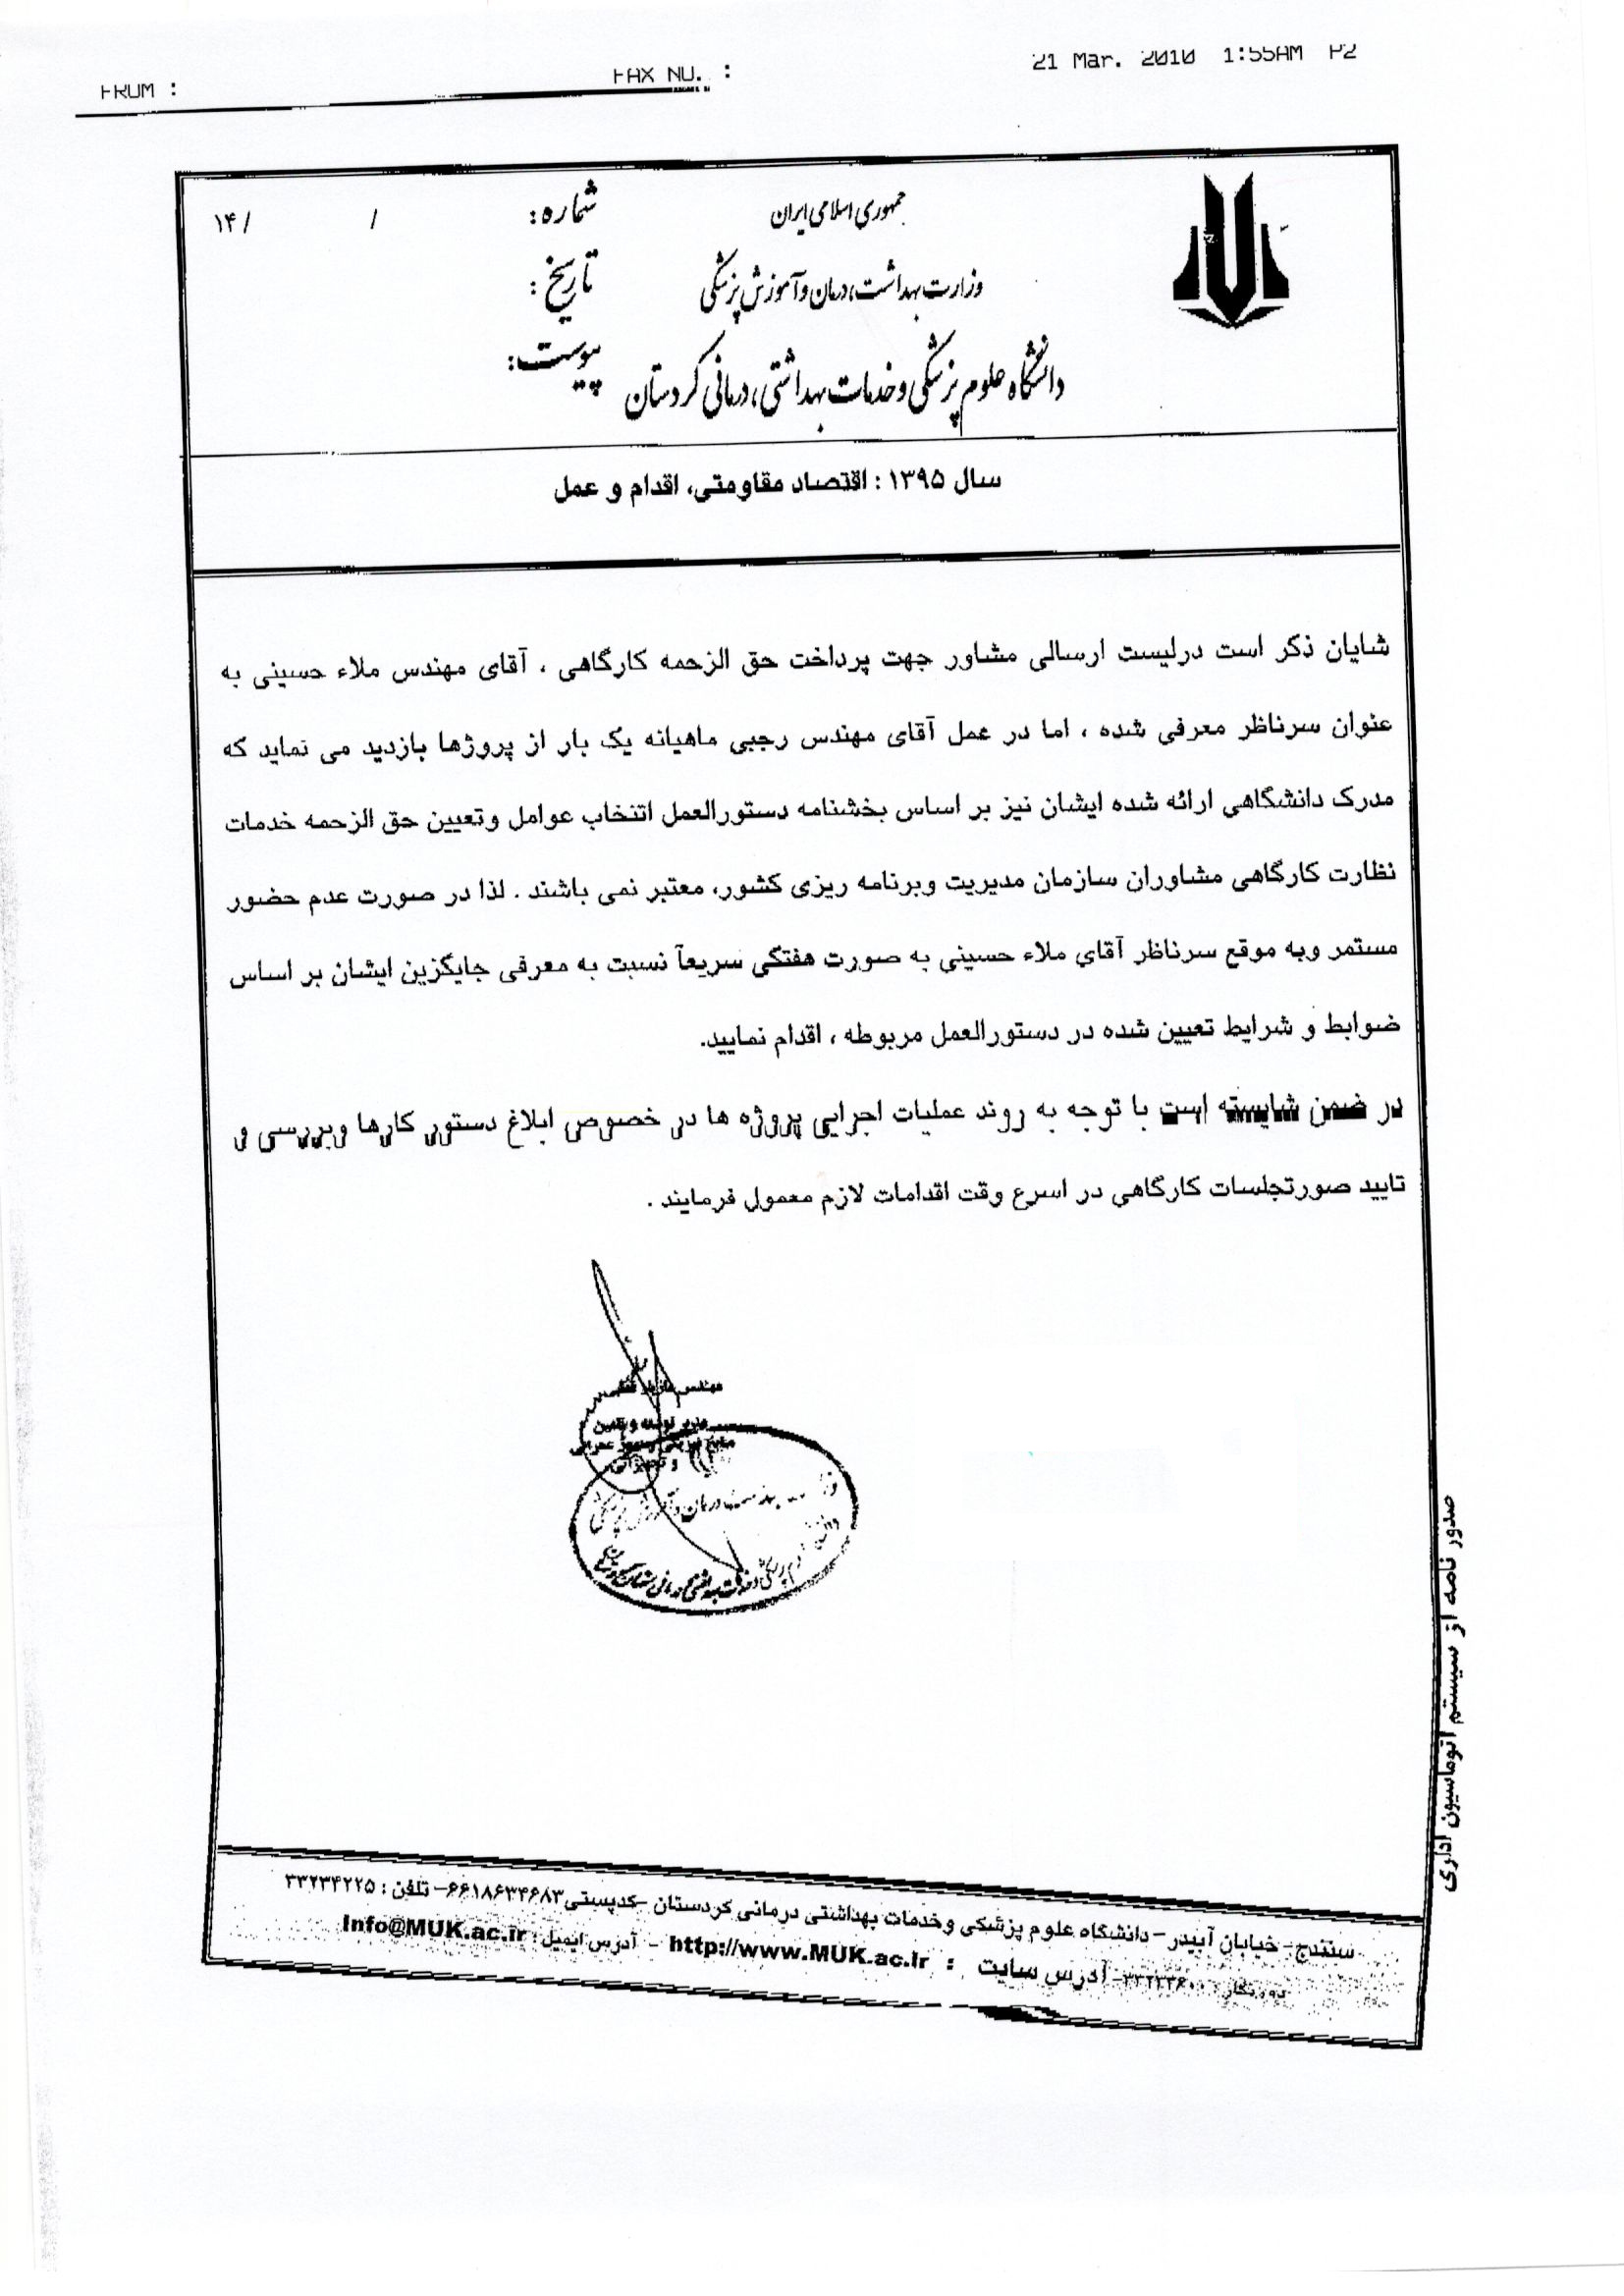 FROM :
FAX NO. :
21 Mar. 2010 1:55AM P2
جمهوری اسلامی ایران
وزارت بهداشت، درمان و آموزش پزشکی
دانشگاه علوم پزشکی و خدمات بهداشتی، درمانی کردستان
شماره: / /۱۴
تاریخ:
پیوست:
سال ۱۳۹۵ : اقتصاد مقاومتی، اقدام و عمل
شایان ذکر است درلیست ارسالی مشاور جهت پرداخت حق الزحمه کارگاهی ، آقای مهندس ملاء حسینی به
عنوان سرناظر معرفی شده ، اما در عمل آقای مهندس رجبی ماهیانه یک بار از پروژها بازدید می نماید که
مدرک دانشگاهی ارائه شده ایشان نیز بر اساس بخشنامه دستورالعمل انتخاب عوامل وتعیین حق الزحمه خدمات
نظارت کارگاهی مشاوران سازمان مدیریت وبرنامه ریزی کشور، معتبر نمی باشند . لذا در صورت عدم حضور
مستمر وبه موقع سرناظر آقای ملاء حسینی به صورت هفتگی سریعآ نسبت به معرفی جایگزین ایشان بر اساس
ضوابط و شرایط تعیین شده در دستورالعمل مربوطه ، اقدام نمایید.
در ضمن شایسته است با توجه به روند عملیات اجرایی پروژه ها در خصوص ابلاغ دستور کارها وبررسی و
تایید صورتجلسات کارگاهی در اسرع وقت اقدامات لازم معمول فرمایند .
مهندس
صدور نامه از سیستم اتوماسیون اداری
سنندج- خیابان آبیدر- دانشگاه علوم پزشکی وخدمات بهداشتی درمانی کردستان -کدپستی ۶۶۱۸۶۳۴۶۸۳- تلفن : ۳۳۲۳۴۲۲۵
دورنگار: - آدرس سایت : http://www.MUK.ac.ir - آدرس ایمیل : Info@MUK.ac.ir